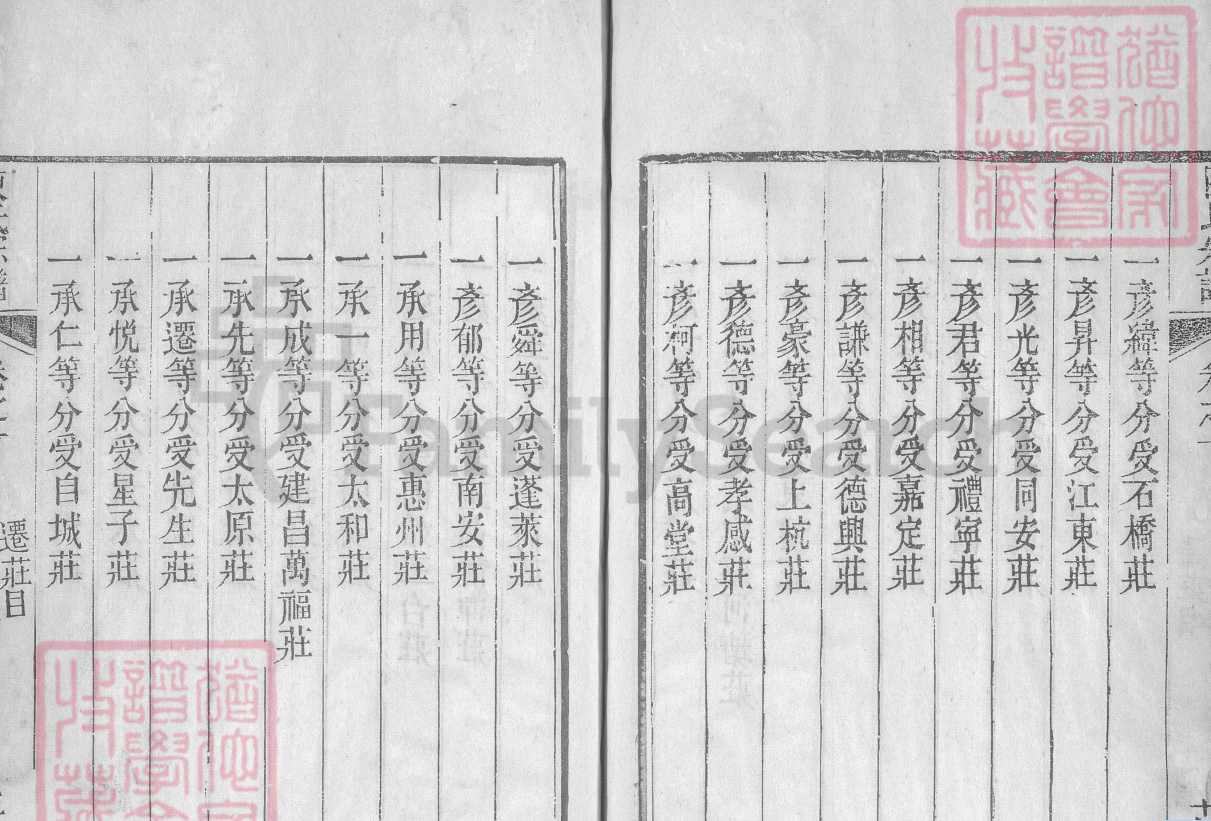 一彥緯等分受石橋莊
一彥昇等分受江東莊
一彥光等分受同安莊
一彥君等分受禮寧莊
一彥相等分受嘉定莊
一彥謙等分受德興莊
一彥豪等分受上杭莊
一彥德等分受孝感莊
一彥柯等分受高堂莊
一彥舜等分受蓬萊莊
一彥郁等分受南安莊
一承用等分受惠州莊
一承一等分受太和莊
一承成等分受建昌萬福莊
一承先等分受太原莊
一承遷等分受先生莊
一承悅等分受星子莊
一承仁等分受自城莊
遷莊目
FamilySearch